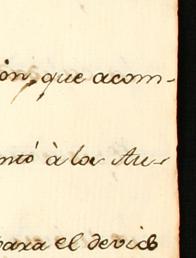 ón, que acom-
ntó à los Au-
para el devido